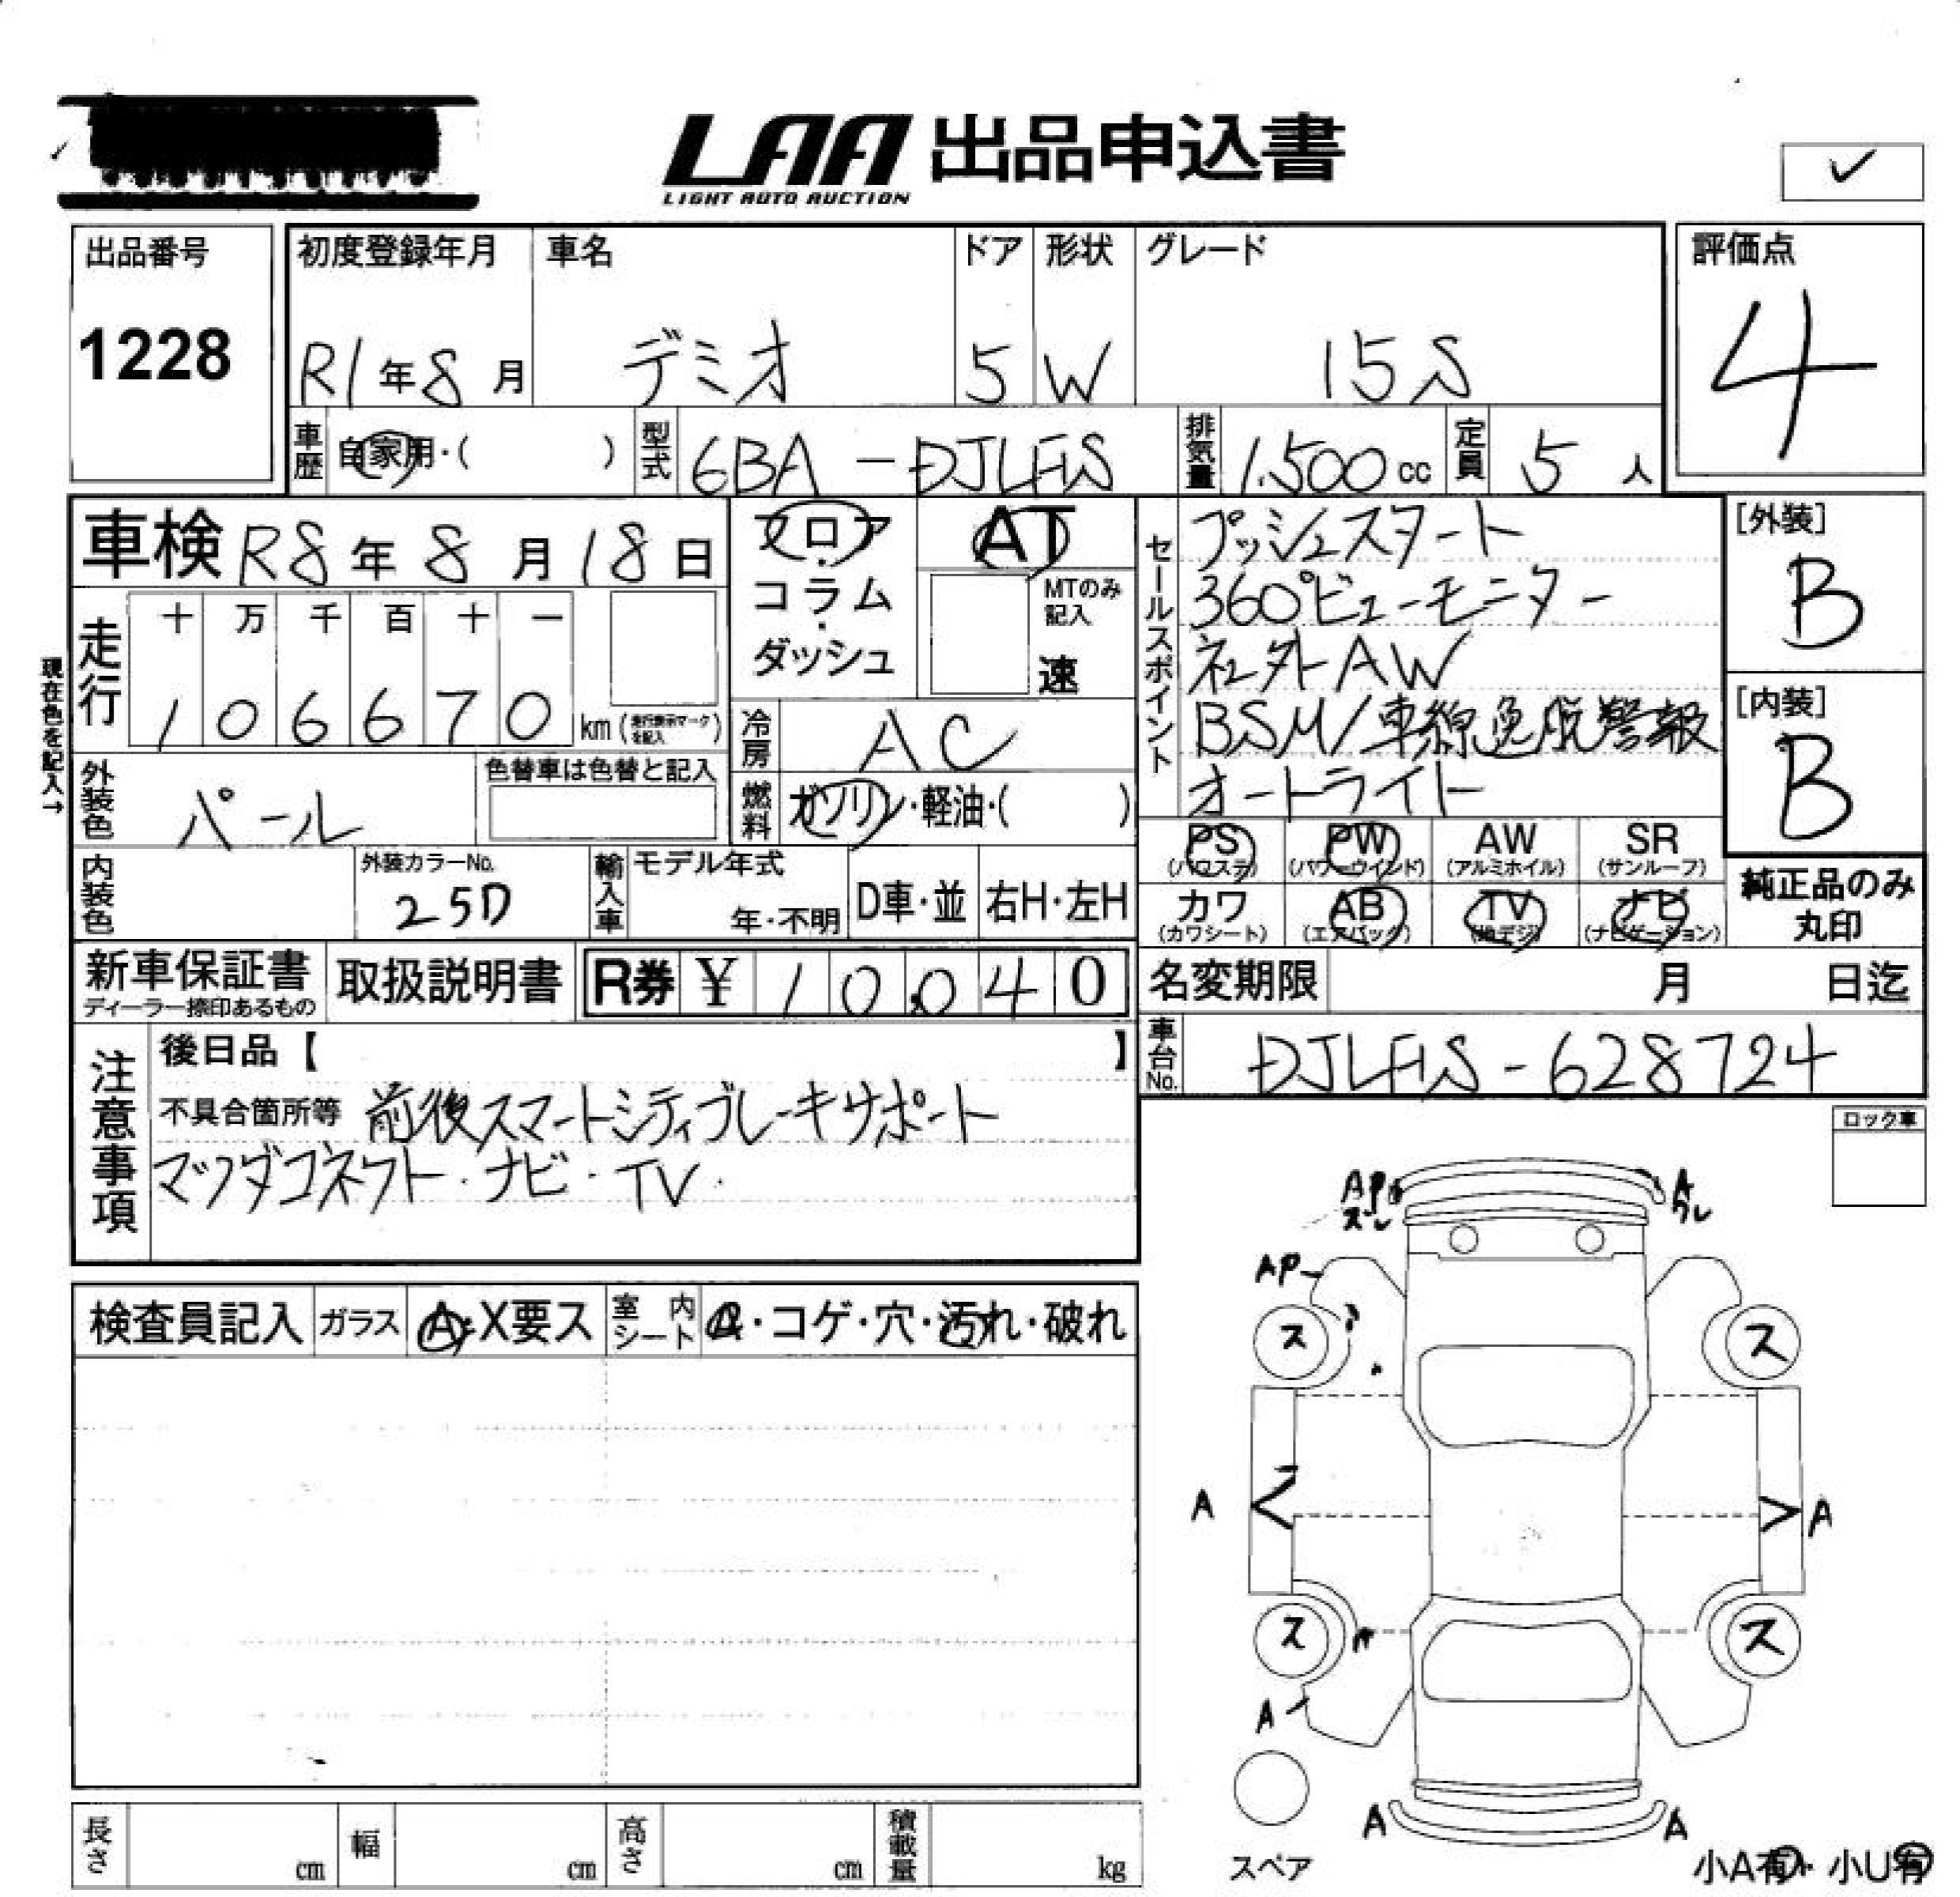 LAA 出品申込書
LIGHT AUTO AUCTION
✓
出品番号
1228
初度登録年月
R1年8月
車名
デミオ
ドア
5
形状
W
グレード
15S
評価点
4
車歴
自家用・( )
型式
6BA-DJLFS
排気量
1.500cc
定員
5人
車検 R8年8月18日
フロア・コラム・ダッシュ
AT
MTのみ記入
速
セールスポイント
プッシュスタート
360°ビューモニター
社外AW
BSM/車線逸脱警報
オートライト
[外装]
B
[内装]
B
純正品のみ丸印
現在色を記入→
走行
十 万 千 百 十 一
1 0 6 6 7 0 km(走行表示マークを記入)
冷房
AC
外装色
パール
色替車は色替と記入
燃料
ガソリン・軽油・( )
PS(パワステ)
PW(パワーウインド)
AW(アルミホイル)
SR(サンルーフ)
カワ(カワシート)
AB(エアバック)
TV(地デジ)
ナビ(ナビゲーション)
内装色
外装カラーNo.
25D
輸入車
モデル年式
年・不明
D車・並
右H・左H
新車保証書
ディーラー捺印あるもの
取扱説明書
R券 ¥ 10,040
名変期限 月 日迄
車台No.
DJLFS-628724
注意事項
後日品【 】
不具合箇所等 前後スマートシティブレーキサポート
マツダコネクト・ナビ・TV.
ロック車
検査員記入
ガラス
A・X要ス
室内シート
・コゲ・穴・汚れ・破れ
AP
A
AP
ス
ス
A
A
ス
ス
A
A
A
スペア
小A有・小U有
長さ cm
幅 cm
高さ cm
積載量 kg